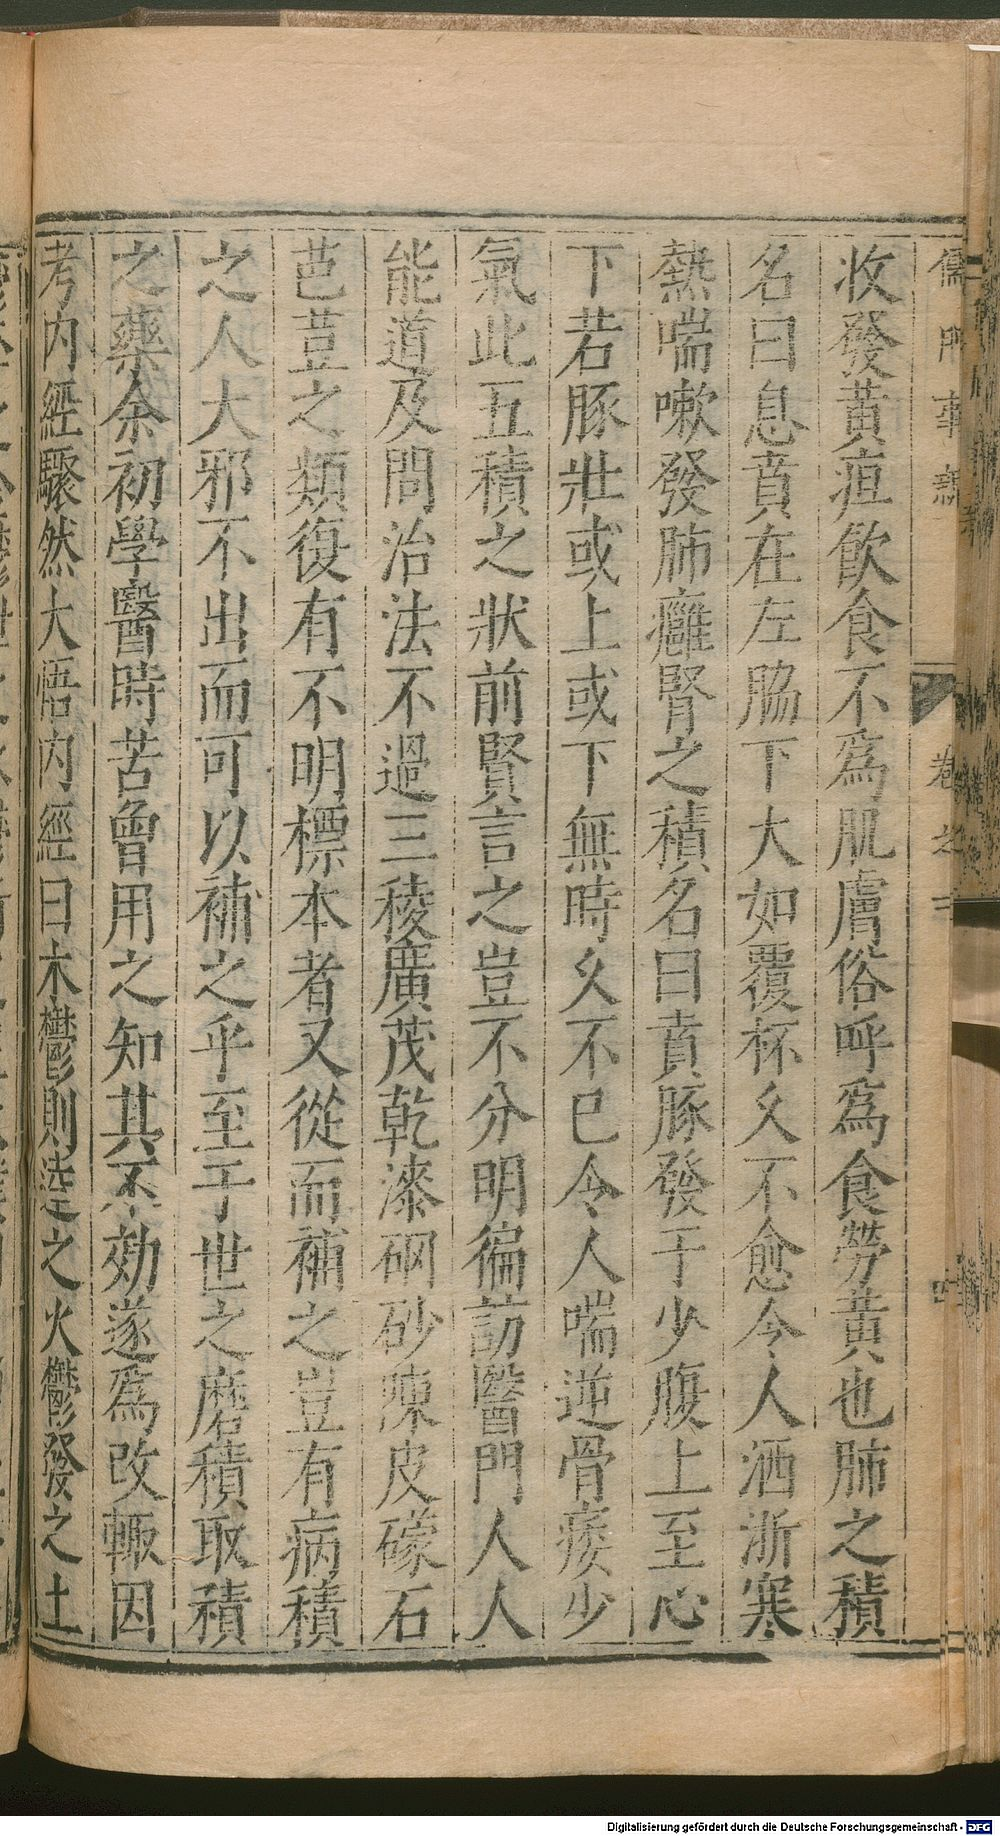 儒門事親 卷之三
收發黃疸飲食不爲肌膚俗呼爲食勞黃也肺之積
名曰息賁在左脇下大如覆杯久不愈令人洒浙寒
熱喘嗽發肺癰腎之積名曰賁豚發于少腹上至心
下若豚壯或上或下無時久不已令人喘逆骨痿少
氣此五積之狀前賢言之豈不分明徧訪醫門人人
能道及問治法不過三稜廣茂乾漆硇砂陳皮礞石
芭荳之類復有不明標本者又從而補之豈有病積
之人大邪不出而可以補之乎至于世之磨積取積
之藥余初學醫時苦曾用之知其不効遂爲改轍因
考內經驟然大悟內經曰木鬱則達之火鬱發之土
Digitalisierung gefördert durch die Deutsche Forschungsgemeinschaft - DFG